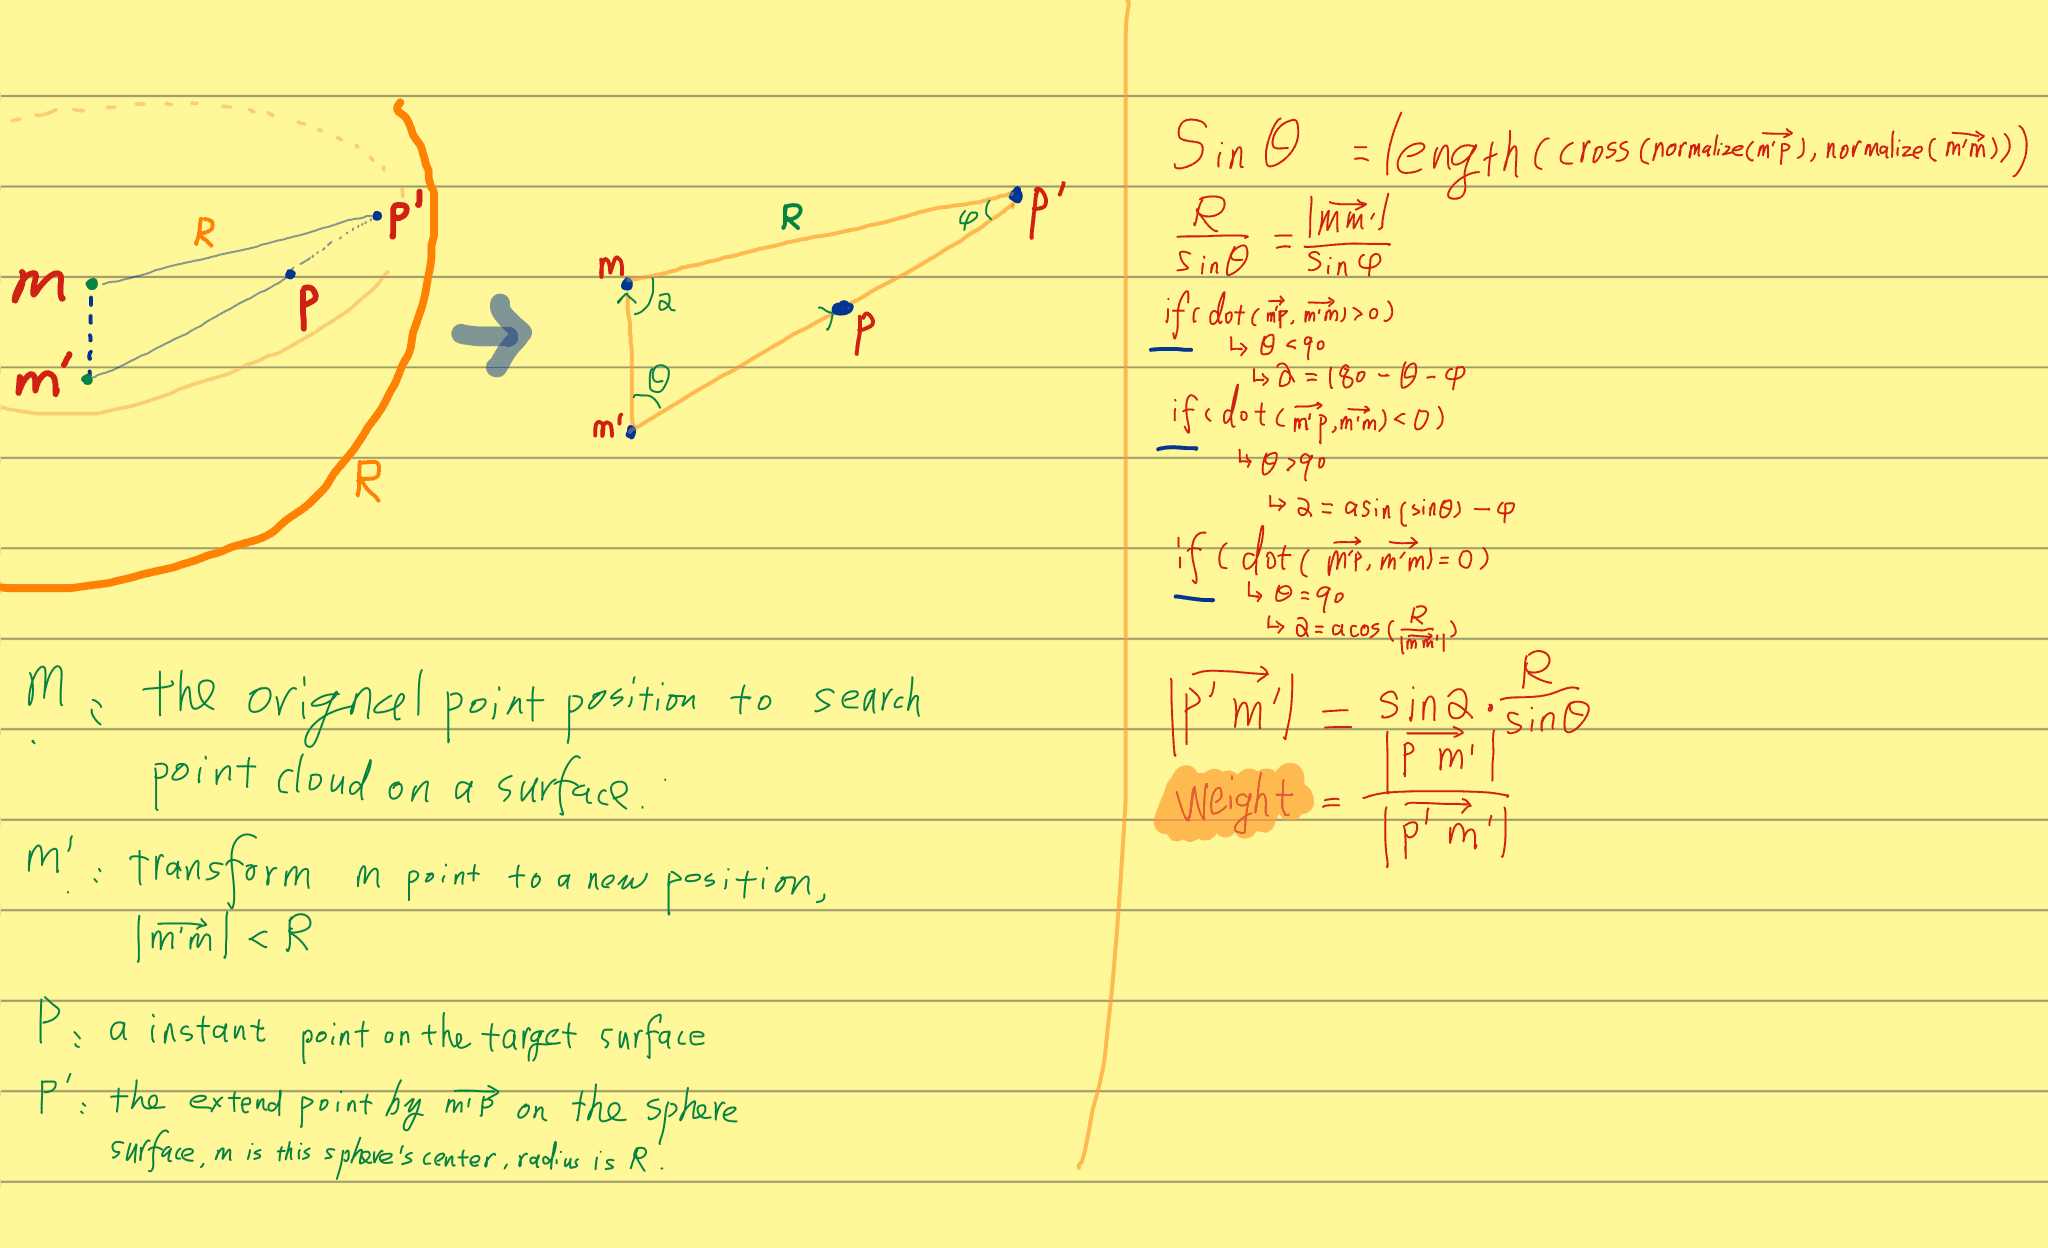 R
P'
m
P
m'
R
R
P'
φ
m
2
P
θ
m'
m : the orignal point position to search
point cloud on a surface.
m' : transform m point to a new position,
|m'm| < R
P : a instant point on the target surface
P' : the extend point by m'p on the sphere
surface, m is this sphere's center, radius is R.
Sinθ = length(cross(normalize(m'p), normalize(m'm)))
R/sinθ = |mm'|/sinφ
if(dot(m'p, m'm)>0)
↳ θ<90
↳ 2 = 180 - θ - φ
if(dot(m'p, m'm)<0)
↳ θ>90
↳ 2 = asin(sinθ) - φ
if(dot(m'p, m'm)=0)
↳ θ=90
↳ 2=acos(R/|mm'|)
|P'm'| = sin2 · R/sinθ
Weight = |P m'|/|P' m'|